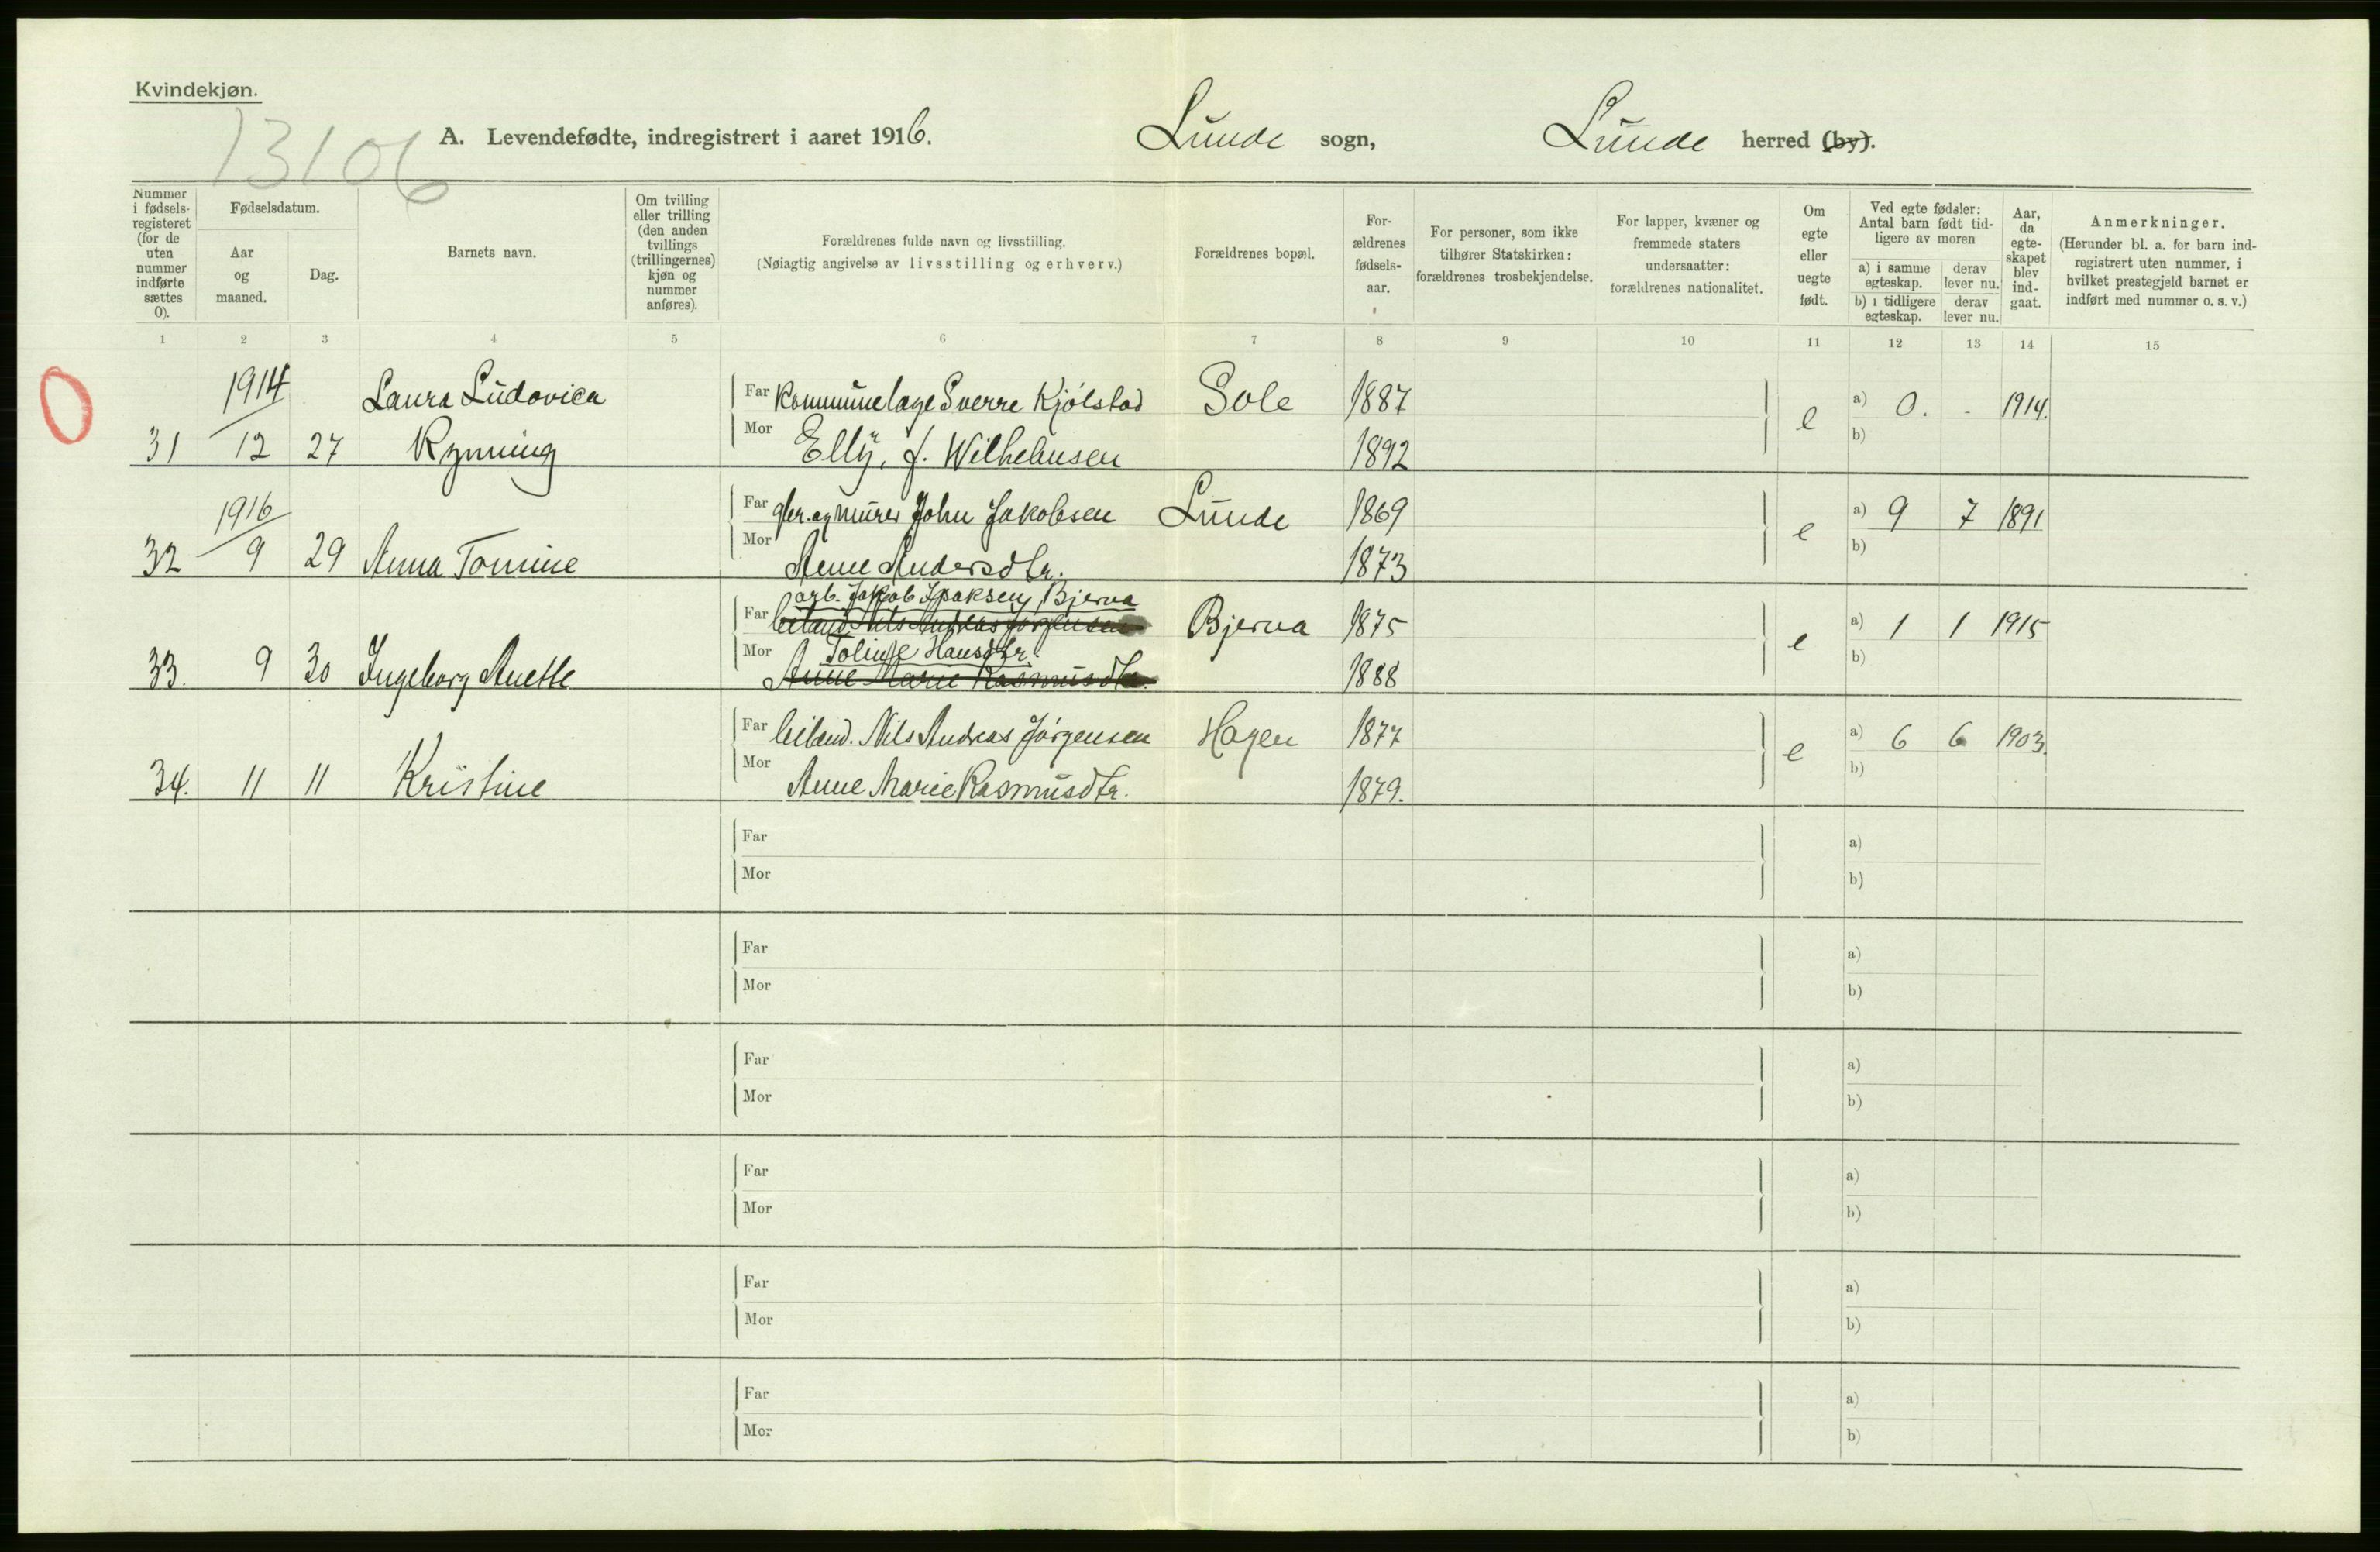 Kvindekjøn.
13106
A. Levendefødte, indregistrert i aaret 1916. Lunde sogn, Lunde herred (by).
Nummer i fødsels-registeret (for de uten nummer indførte sættes 0).
Fødselsdatum.
Aar og maaned.
Dag.
Barnets navn.
Om tvilling eller trilling (den anden tvillings (trillingernes) kjøn og nummer anføres).
Forældrenes fulde navn og livsstilling.
(Nøiagtig angivelse av livsstilling og erhverv.)
Forældrenes bopæl.
For-ældrenes fødsels-aar.
For personer, som ikke tilhører Statskirken: forældrenes trosbekjendelse.
For lapper, kvæner og fremmede staters undersaatter: forældrenes nationalitet.
Om egte eller uegte født.
Ved egte fødsler: Antal barn født tid-ligere av moren
a) i samme egteskap.
derav lever nu.
b) i tidligere egteskap.
derav lever nu.
Aar, da egte-skapet blev ind-gaat.
Anmerkninger.
(Herunder bl. a. for barn ind-registrert uten nummer, i hvilket prestegjeld barnet er indført med nummer o. s. v.)
1 2 3 4 5 6 7 8 9 10 11 12 13 14 15
0
1914 Laura Ludovica Far Kommunelæge Sverre Kjølstad Sole 1887 e a) 0. - 1914.
31 12 27 Rynning Mor Elly, f. Wilhelmsen 1892 b)
1916 Far gbr. og murer John Jakobsen Lunde 1869 e a) 9 7 1891
32 9 29 Anna Tomine Mor Anne Andersdtr. 1873 b)
arb. Jakob Isaksen, Bjerva
Far leiland. Nils Andreas Jørgensen Bjerva 1875 e a) 1 1 1915
Mor Hansdtr. b)
33. 9 30 Ingeborg Anette Anne Marie Rasmusdtr. 1888
Far leiland. Nils Andreas Jørgensen Hagen 1877 e a) 6 6 1903.
34. 11 11 Kristine Mor Anne Marie Rasmusdtr. 1879. b)
Far a)
Mor b)
Far a)
Mor b)
Far a)
Mor b)
Far a)
Mor b)
Far a)
Mor b)
Far a)
Mor b)